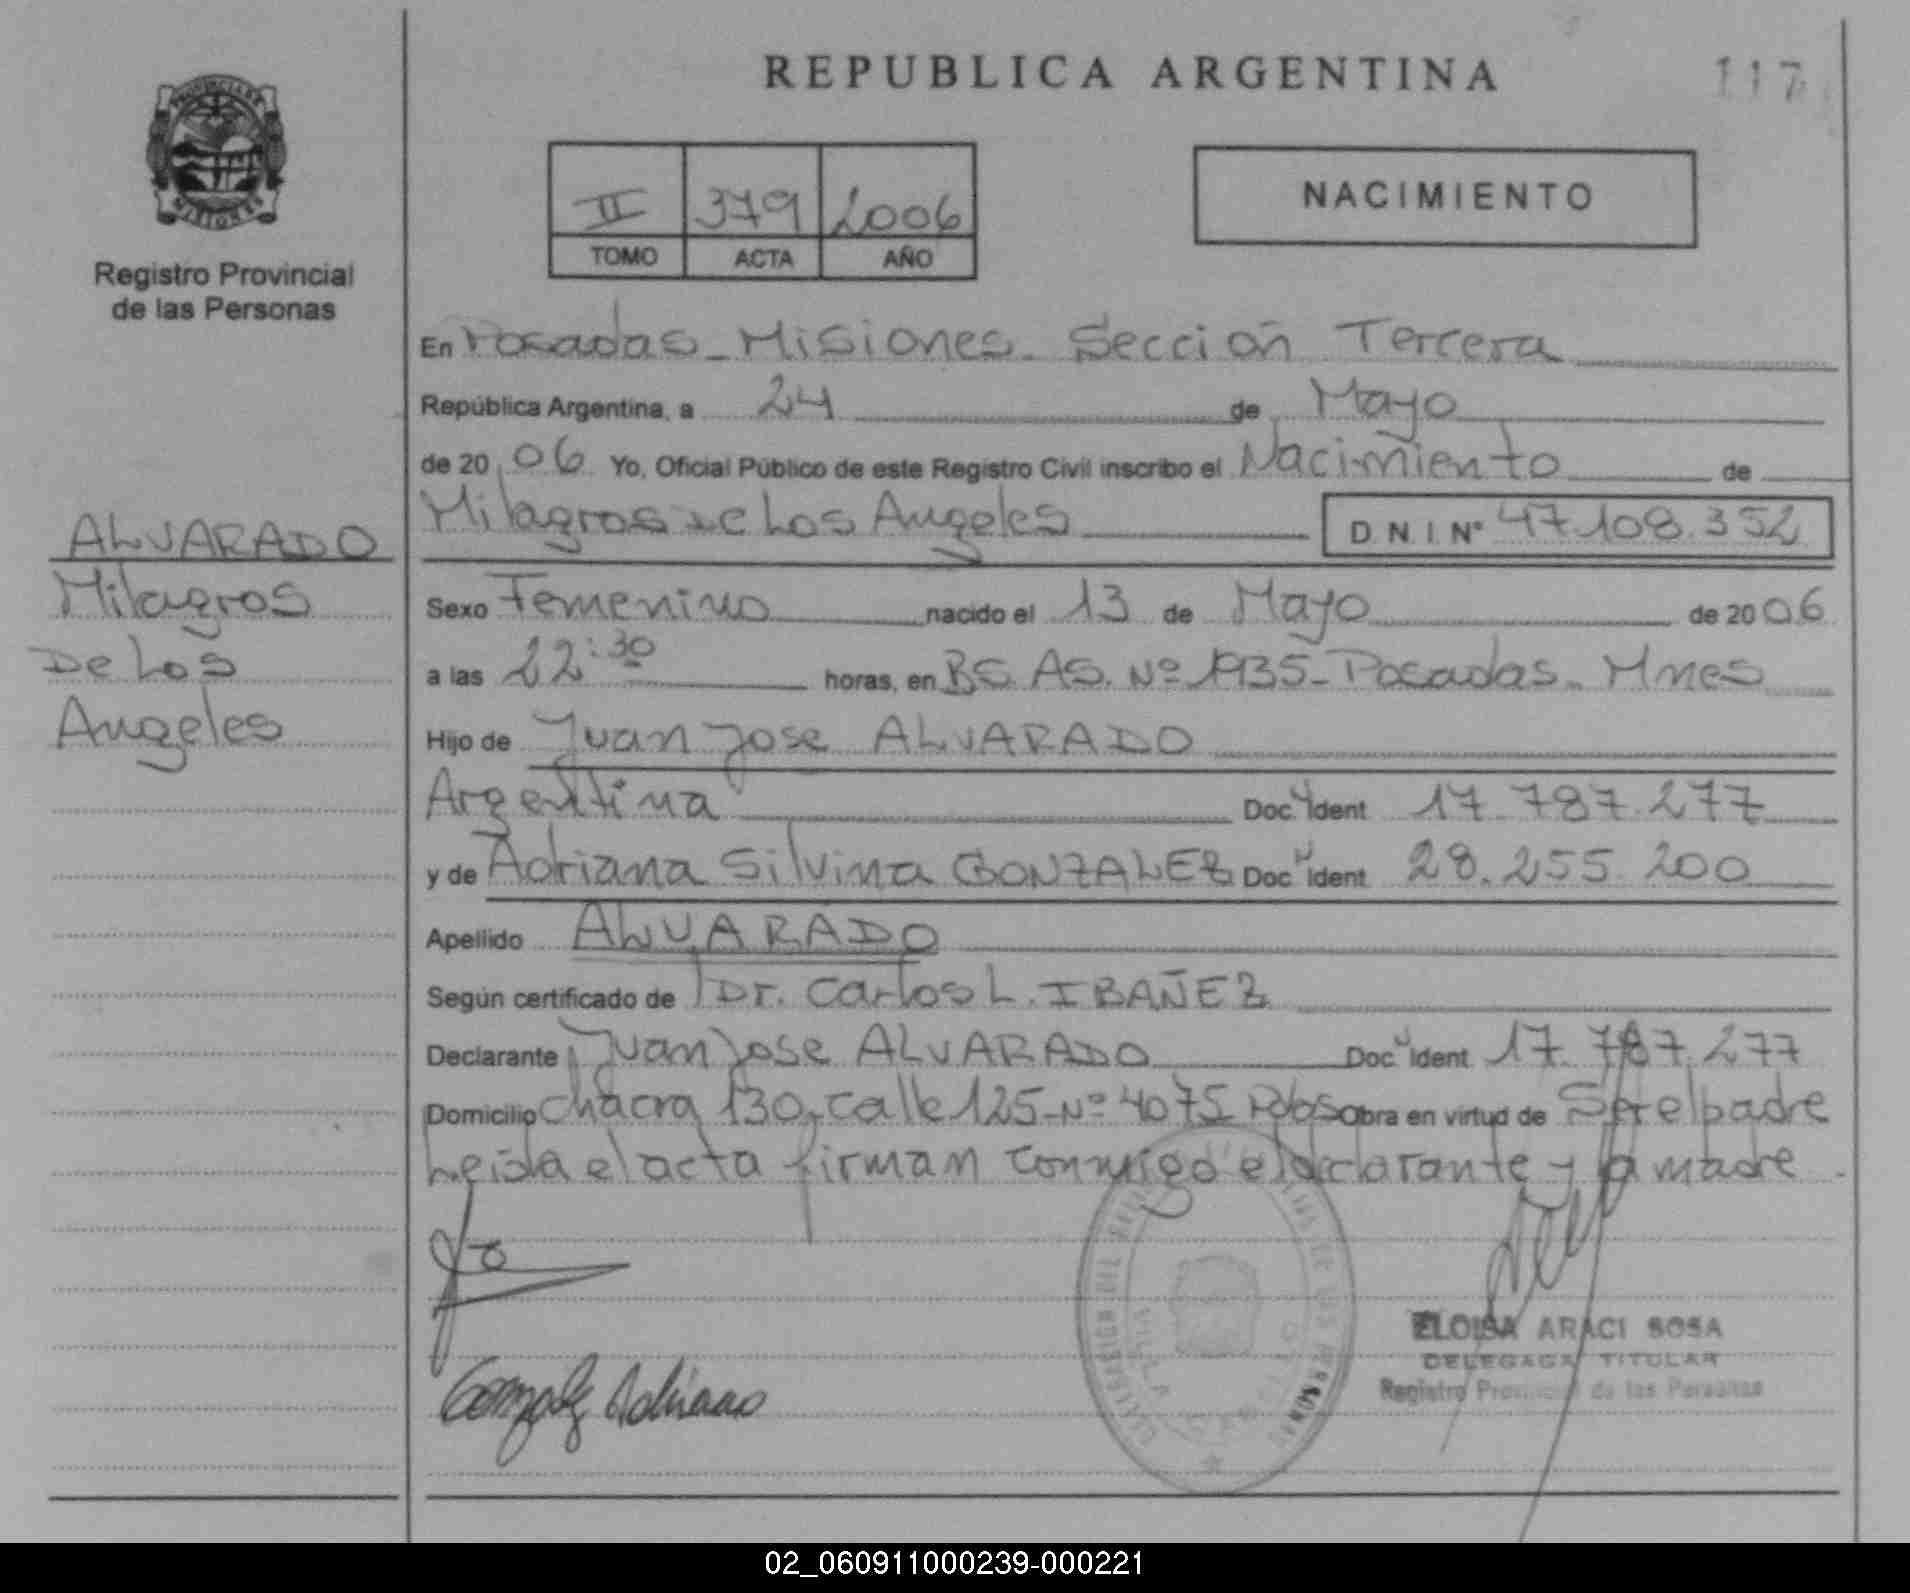 REPUBLICA ARGENTINA
117
PROVINCIA DE
MISIONES
Registro Provincial
de las Personas
II 379 2006
TOMO ACTA AÑO
NACIMIENTO
En Posadas - Misiones - Sección Tercera
República Argentina, a 24 de Mayo
de 20 06 Yo, Oficial Público de este Registro Civil inscribo el Nacimiento de
Milagros De Los Angeles D.N.I. N° 47.108.352
ALVARADO
Milagros
De Los
Angeles
Sexo Femenino nacido el 13 de Mayo de 20 06
a las 22:30 horas, en BS. AS. Nº 1935 - Posadas - Mnes
Hijo de Juan Jose ALVARADO
Argentina Doc. Ident 17.787.277
y de Adriana Silvina GONZALEZ Doc. Ident 28.255.200
Apellido ALVARADO
Según certificado de Dr. Carlos L. IBAÑEZ
Declarante Juan Jose ALVARADO Doc Ident 17.787.277
Domicilio chacra 130, calle 125 - Nº 4075 Pdas Obra en virtud de Ser el padre
Leida el acta firman conmigo el declarante y la madre.
Gonzalez Adriana
ELOISA ARACI SOSA
DELEGADA TITULAR
Registro Provincial de las Personas
02_060911000239-000221